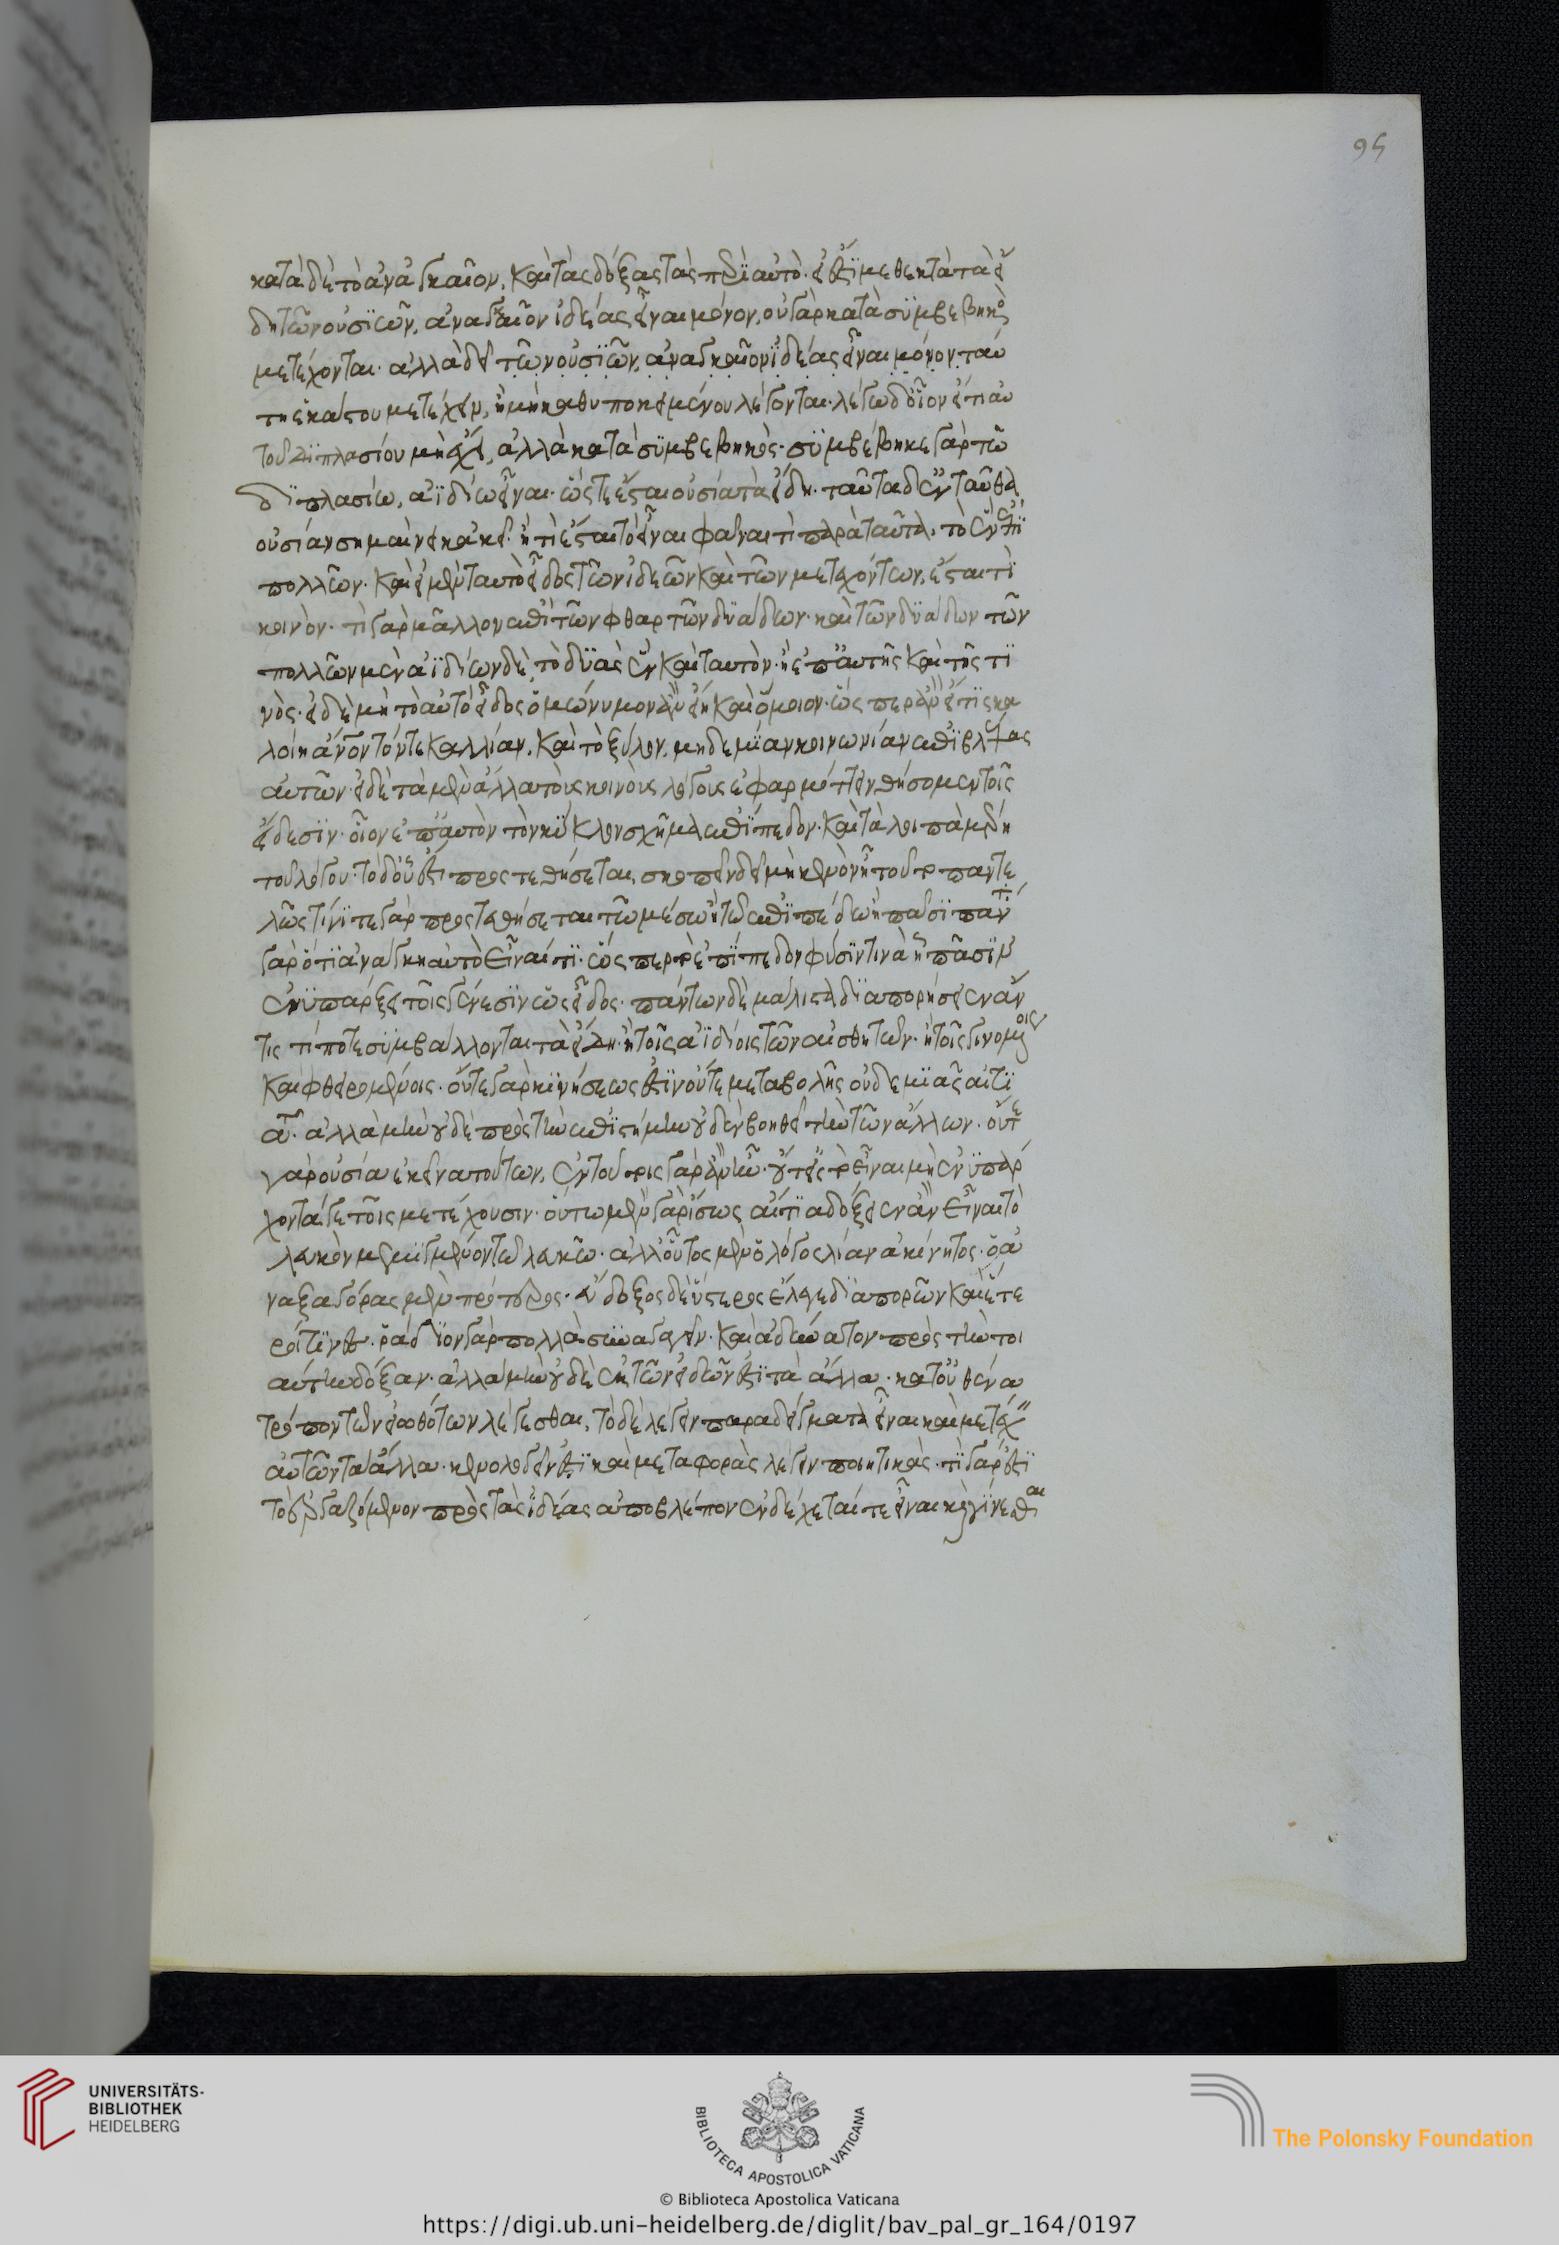 95
κατὰ δὲ τὸ ἀναγκαῖον, καὶ τὰς δόξας τὰς περὶ αὐτὸ. εἰ ἐστὶ μεθεκτὰ τὰ εἴ
δη τῶν οὐσιῶν, ἀναγκαῖον ἰδέας εἶναι μόνον, οὐ γὰρ κατὰ συμβεβηκὸς
μετέχονται. ἀλλὰ δεῖ τῶν οὐσιῶν, ἀναγκαῖον ἰδέας εἶναι μόνον ταύ
τη ἑκάστου μετέχειν, ἢ μὴ καθ υποκειμένου λέγονται. λέγω δ οἷον εἴ τι αὐ
τοδιπλασίου μετέχει, ἀλλὰ κατὰ συμβεβηκὸς. συμβέβηκε γὰρ τῶ
διπλασίω, ἀϊδίω εἶναι. ὥστε ἔσται οὐσία τὰ εἴδη. ταῦτα δ ἐνταῦθα
οὐσίαν σημαίνει κἀκεῖ. ἢ τί ἔσται τὸ εἶναι φαναι τὶ παρὰ ταῦτα, τὸ ἓν ἐπὶ
πολλῶν. καὶ εἰ μὲν ταυτὸ εἶδος τῶν ἰδεῶν καὶ τῶν μετεχόντων, ἔσται τὶ
κοινὸν. τὶ γὰρ μᾶλλον ἐπὶ τῶν φθαρτῶν δυάδων. καὶ τῶν δυάδων τῶν
πολλῶν μὲν ἀϊδίων δὲ, τὸ δυὰς ἓν καὶ ταυτὸν. ἢ ἐπ αὐτῆς καὶ τῆς τὶ
νὸς. εἰ δὲ μὴ τὸ αὐτὸ εἶδος ὁμώνυμον ἂν εἴη καὶ ὅμοιον. ὥσπερ ἂν εἴ τις κα
λοίη ἄνον τόν τε καλλίαν, καὶ τὸ ξύλον, μηδεμίαν κοινωνίαν ἐπιβλέψας
αὐτῶν. εἰ δὲ τὰ μὲν ἄλλα τοὺς κοινοὺς λόγους ἐφαρμόττειν θήσομεν τοῖς
εἴδεσιν. οἷον ἐπ αὐτὸν τὸν κύκλον σχῆμα ἐπίπεδον. καὶ τὰ λοιπὰ μέρη
τοῦ λόγου. τὸ δ οὗ ἐστι προστεθήσεται, σκοπεῖν δεῖ μὴ κενὸν ἦ τοῦτο παντε
λῶς τίνί τε γὰρ προστεθήσεται τῶ μέσω ἢ τῶ ἐπιπέδω ἢ πασι παντ
γὰρ ὅτι ἀνάγκη αὐτὸ εἶναί τι. ὥσπερ τὸ ἐπίπεδον φύσιν τινὰ ἣ πᾶσιν
ἐνυπάρξει τοῖς γένεσιν ὡς εἶδος. πάντων δὲ μάλιστα διαπορήσειεν ἄν
τις τί ποτε συμβάλλονται τὰ εἴδη. ἢ τοῖς ἀϊδίοις τῶν αἰσθητῶν. ἢ τοῖς γινομένοις
καὶ φθειρομένοις. οὔτε γὰρ κινήσεως ἐστὶν οὔτε μεταβολῆς οὐδεμιᾶς αἰτί
α. ἀλλὰ μὴν οὐδὲ πρὸς τὴν ἐπιστήμην οὐδὲν βοηθεῖ τὴν τῶν ἄλλων. οὔτε
γὰρ οὐσία ἐκεῖνα τούτων, ἐν τούτοις γὰρ ἂν ἦν. οὔτ εἰς τὸ εἶναι μὴ ἐνυπάρ
χοντά γε τοῖς μετέχουσιν. οὕτω μὲν γὰρ ἴσως αἴτια δόξειεν ἂν εἶναι τὸ
λευκὸν μεμιγμένον τῶ λευκῶ. ἀλλ οὗτος μὲν ὁ λόγος λίαν ἀκίνητος. ὃ ἀ
ναξαγόρας μὲν πρότερος. εὔδοξος δὲ ὕστερος ἔλεγε διαπορῶν καὶ ἕτε
ροί τινες. ῥάδιον γὰρ πολλὰ συναγαγεῖν. καὶ ἀδύνατον πρὸς τὴν τοι
αύτην δόξαν. ἀλλὰ μὴν οὐδὲ ἐκ τῶν εἰδῶν ἐστὶ τὰ ἄλλα. κατ οὐθένα
τρόπον τῶν εἰωθότων λέγεσθαι, τὸ δὲ λέγειν παραδείγματα εἶναι καὶ μετέχειν
αὐτῶν τὰ ἄλλα. κενολογεῖν ἐστὶ καὶ μεταφορὰς λέγειν ποιητικὰς. τί γάρ ἐστι
τὸ ἐργαζόμενον πρὸς τὰς ἰδέας ἀποβλέπον ἐνδέχεταί τε εἶναι καὶ γίνεσθαι
UNIVERSITÄTS-
BIBLIOTHEK
HEIDELBERG
BIBLIOTECA APOSTOLICA VATICANA
The Polonsky Foundation
© Biblioteca Apostolica Vaticana
https://digi.ub.uni-heidelberg.de/diglit/bav_pal_gr_164/0197